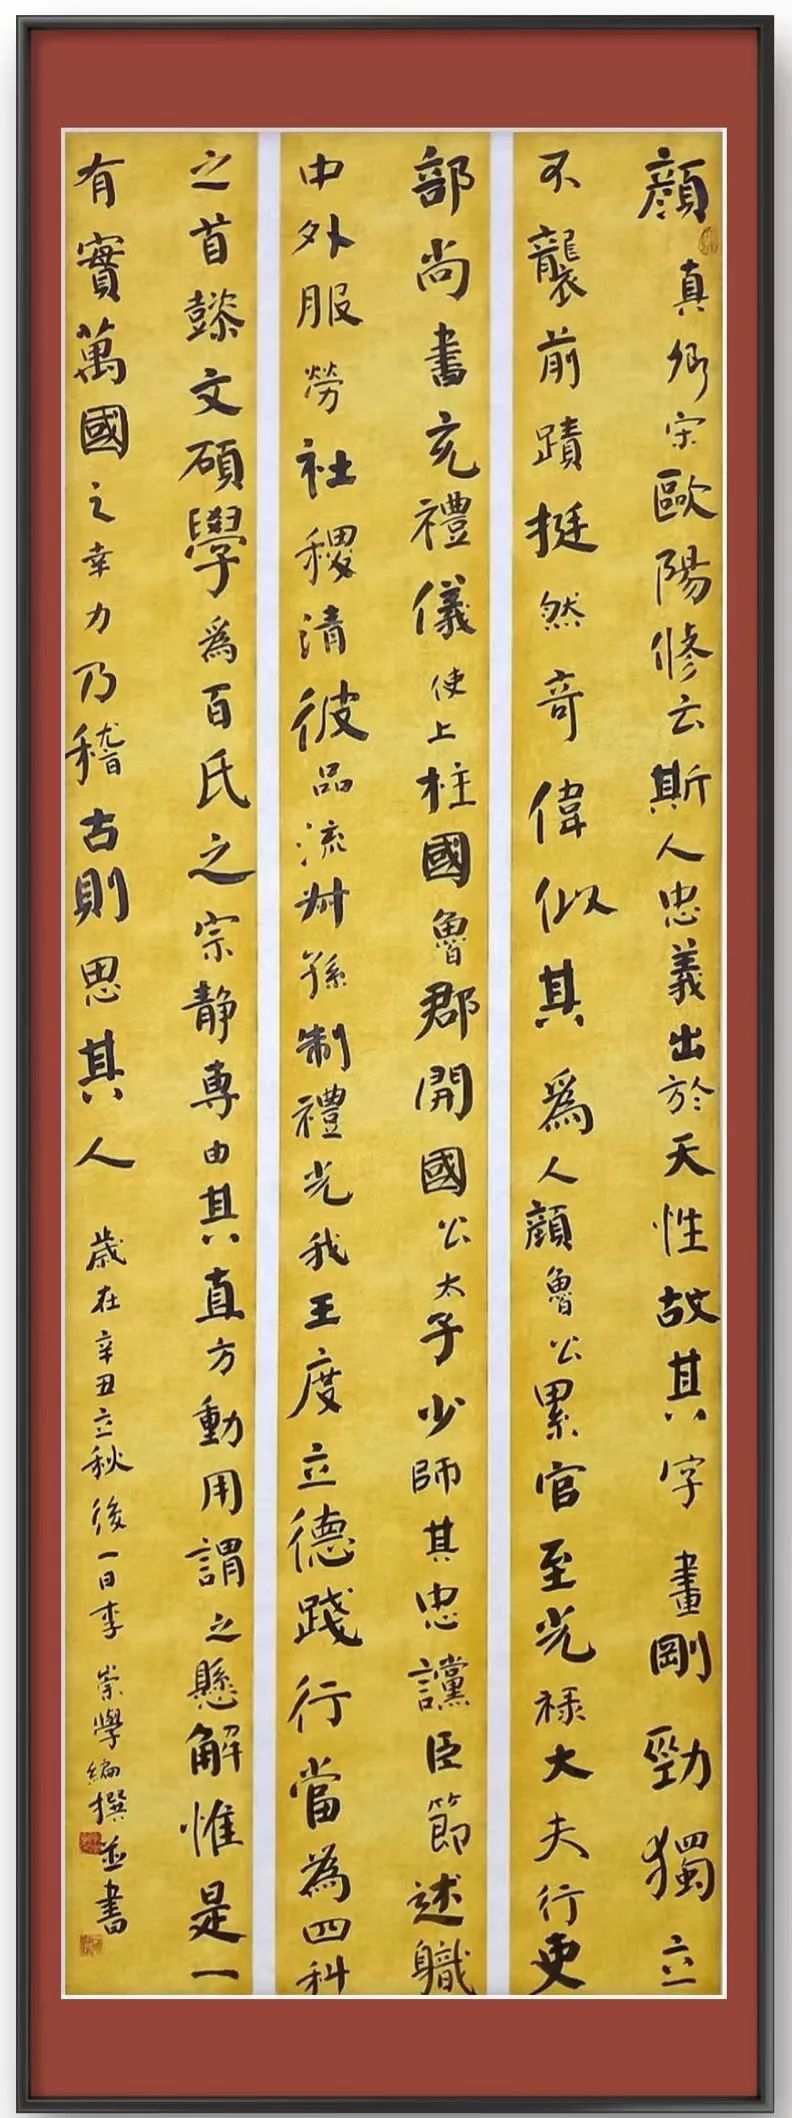 顏真卿宋歐陽修云斯人忠義出於天性故其字畫剛勁獨立
不襲前蹟挺然奇偉似其為人顏魯公累官至光祿大夫行吏
部尚書充禮儀使上柱國魯郡開國公太子少師其忠讜臣節述職
中外服勞社稷清彼品流叔孫制禮光我王度立德踐行當為四科
之首懿文碩學為百氏之宗靜專由其直方動用謂之懸解惟是一
有實萬國之幸力乃稽古則思其人
歲在辛丑立秋後一日李崇學編撰並書